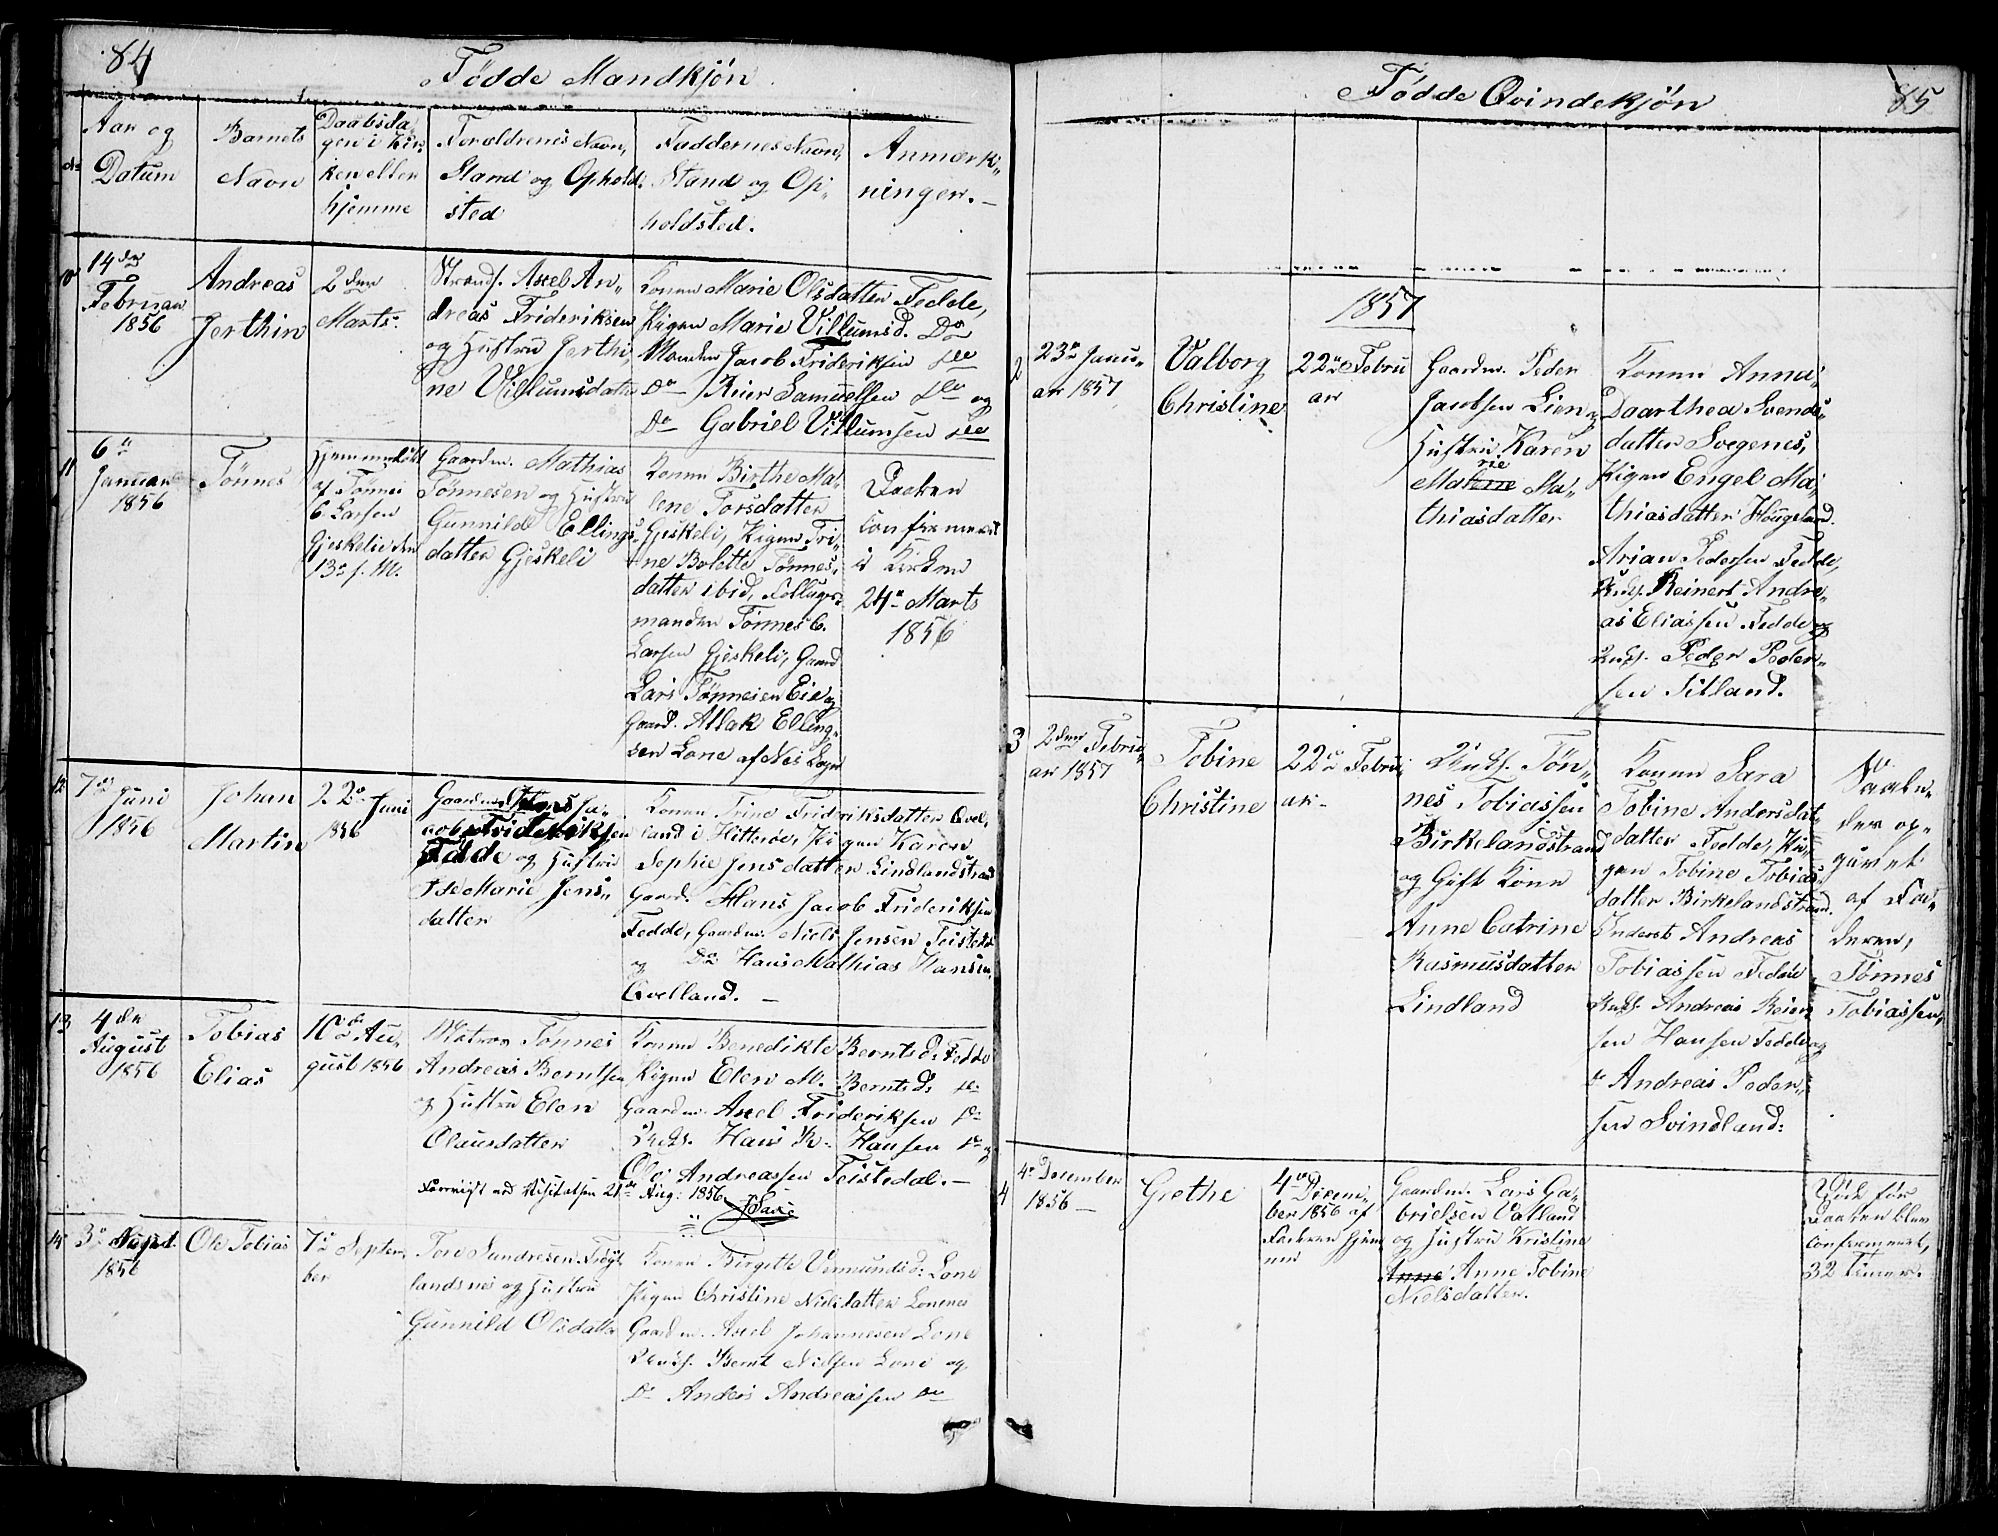 84
Fødde Mandkjøn
Aar og
Datum
Barnets
Navn
Daabsda-
gen i Kir-
ken eller
hjemme
Forældrenes Navn,
Stand og Ophold-
sted
Faddernes Navn,
Stand og Op-
holdsted.
Anmærk-
ninger.
10
14den
Februar
1856
Andreas
Jerthin
2den
Marts
Strands. Axel An-
dreas Frideriksen
og Hustru Jerthi-
ne Villumsdatter
Konen Marie Olsdatter Fedde,
Pigen Marie Villumsd. Do
Manden Jacob Frideriksen Do
Do Reier Samuelsen Do og
Do Gabriel Villumsen Do
11
6te
Januar
1856
Tønnes
Hjemmedøbt
af Tønnes
C. Larsen
Gjeskelie den
13de s. M.
Gaardm. Mathias
Tønnesen og Hustru
Gunnilde Ellings-
datter Gjeskeli
Konen Birthe Ma-
lene Torsdatter
Gjeskeli, Pigen Tri-
ne Bolette Tønnes-
datter ibid,
manden Tønnes C.
Larsen Gjeskeli, Gaard
Lars Tønnesen Eie og
Gaard. Atlak Elling-
sen Lone af Nes Sogn
Daaben
confirmeret
i Kirken
24de Marts
1856
12
7de
Juni
1856
Johan
Martin
22de Juni
1856
Gaardm. Ja-
cob Frideriksen
Fedde og Hustru
Ane Marie Jens-
datter
Konen Trine Frideriksdatter Qvel-
land i Hitterøe, Pigen Karen
Sophie Jensdatter Lindlandstrand
Gaard. Hans Jacob Frideriksen
Fedde, Gaardm. Niels Jensen Teistedal
og Do Hans Mathias Hansen
Qvelland.
13
4de
August
1856
Tobias
Elias
10de Au-
gust 1856
Matros Tønnes
Andreas Berntsen
og Hustru Elen
Olausdatter
Konen Benedikte Berntsd: Fedde
Pigen Elen M. Berntsd: Do
Gaardm. Axel Frideriksen Do
Hans R. Hansen Do og
Ole Andreassen Teistedal.
Forevist ved Visitatsen 21de Aug: 1856
14
3de August
1856
Ole Tobias
7de Septem-
ber
Tore Sundresen Frøy-
landsnes og Hustru
Gunnild Olsdatter
Konen Birgitte Vermundsd: Lone
Pigen Christine Nielsdatter Lonenes
Gaardm. Axel Johannesen Lone
Bernt Nielsen Lone og
Do Anders Andreassen Do
Fødde Qvindekjøn
85
1857
2
23de Janu-
ar 1857
Valborg
Christine
22de Febru
ar
Gaardm. Peder
Jacobsen Lien og
Hustru Karen
Malene
rie
Ma-
thiasdatter
Konen Anna
Daarthea Svends-
datter Svegenes,
Pigen Engel Ma-
thiasdatter Høugeland.
Arian Pedersen Fedde,
Reinert Andre-
as Eliassen Fedde og
Peder Peder-
sen Tilland.
3
2den Febru-
ar 1857
Tobine
Christine
22de Febru-
ar
Tøn-
nes Tobiassen
Birkelandstrand
og Gift Kone
Anne Catrine
Rasmusdatter
Lindland
Konen Sara
Tobine Andersdat-
datter Fedde, Pi-
gen Tobine Tobias-
datter Birkelandstrand.
Inderst Andreas
Tobiassen Fedde
Andreas Reier
sen Hansen Fedde og
Do Andreas Peder-
sen Svindland.
Saale-
des op-
givet
af Fa-
deren,
Tønnes
Tobiassen,
4
4de December
1856
Grethe
4de Decem-
ber 1856 af
Faderen hjem
me
Gaardm. Lars Ga-
brielsen Vatland
og Hustru Kristine
Anne Anne Tobine
Nielsdatter.
Døde før
Daaben blev
confirmeret,
32 Timer.